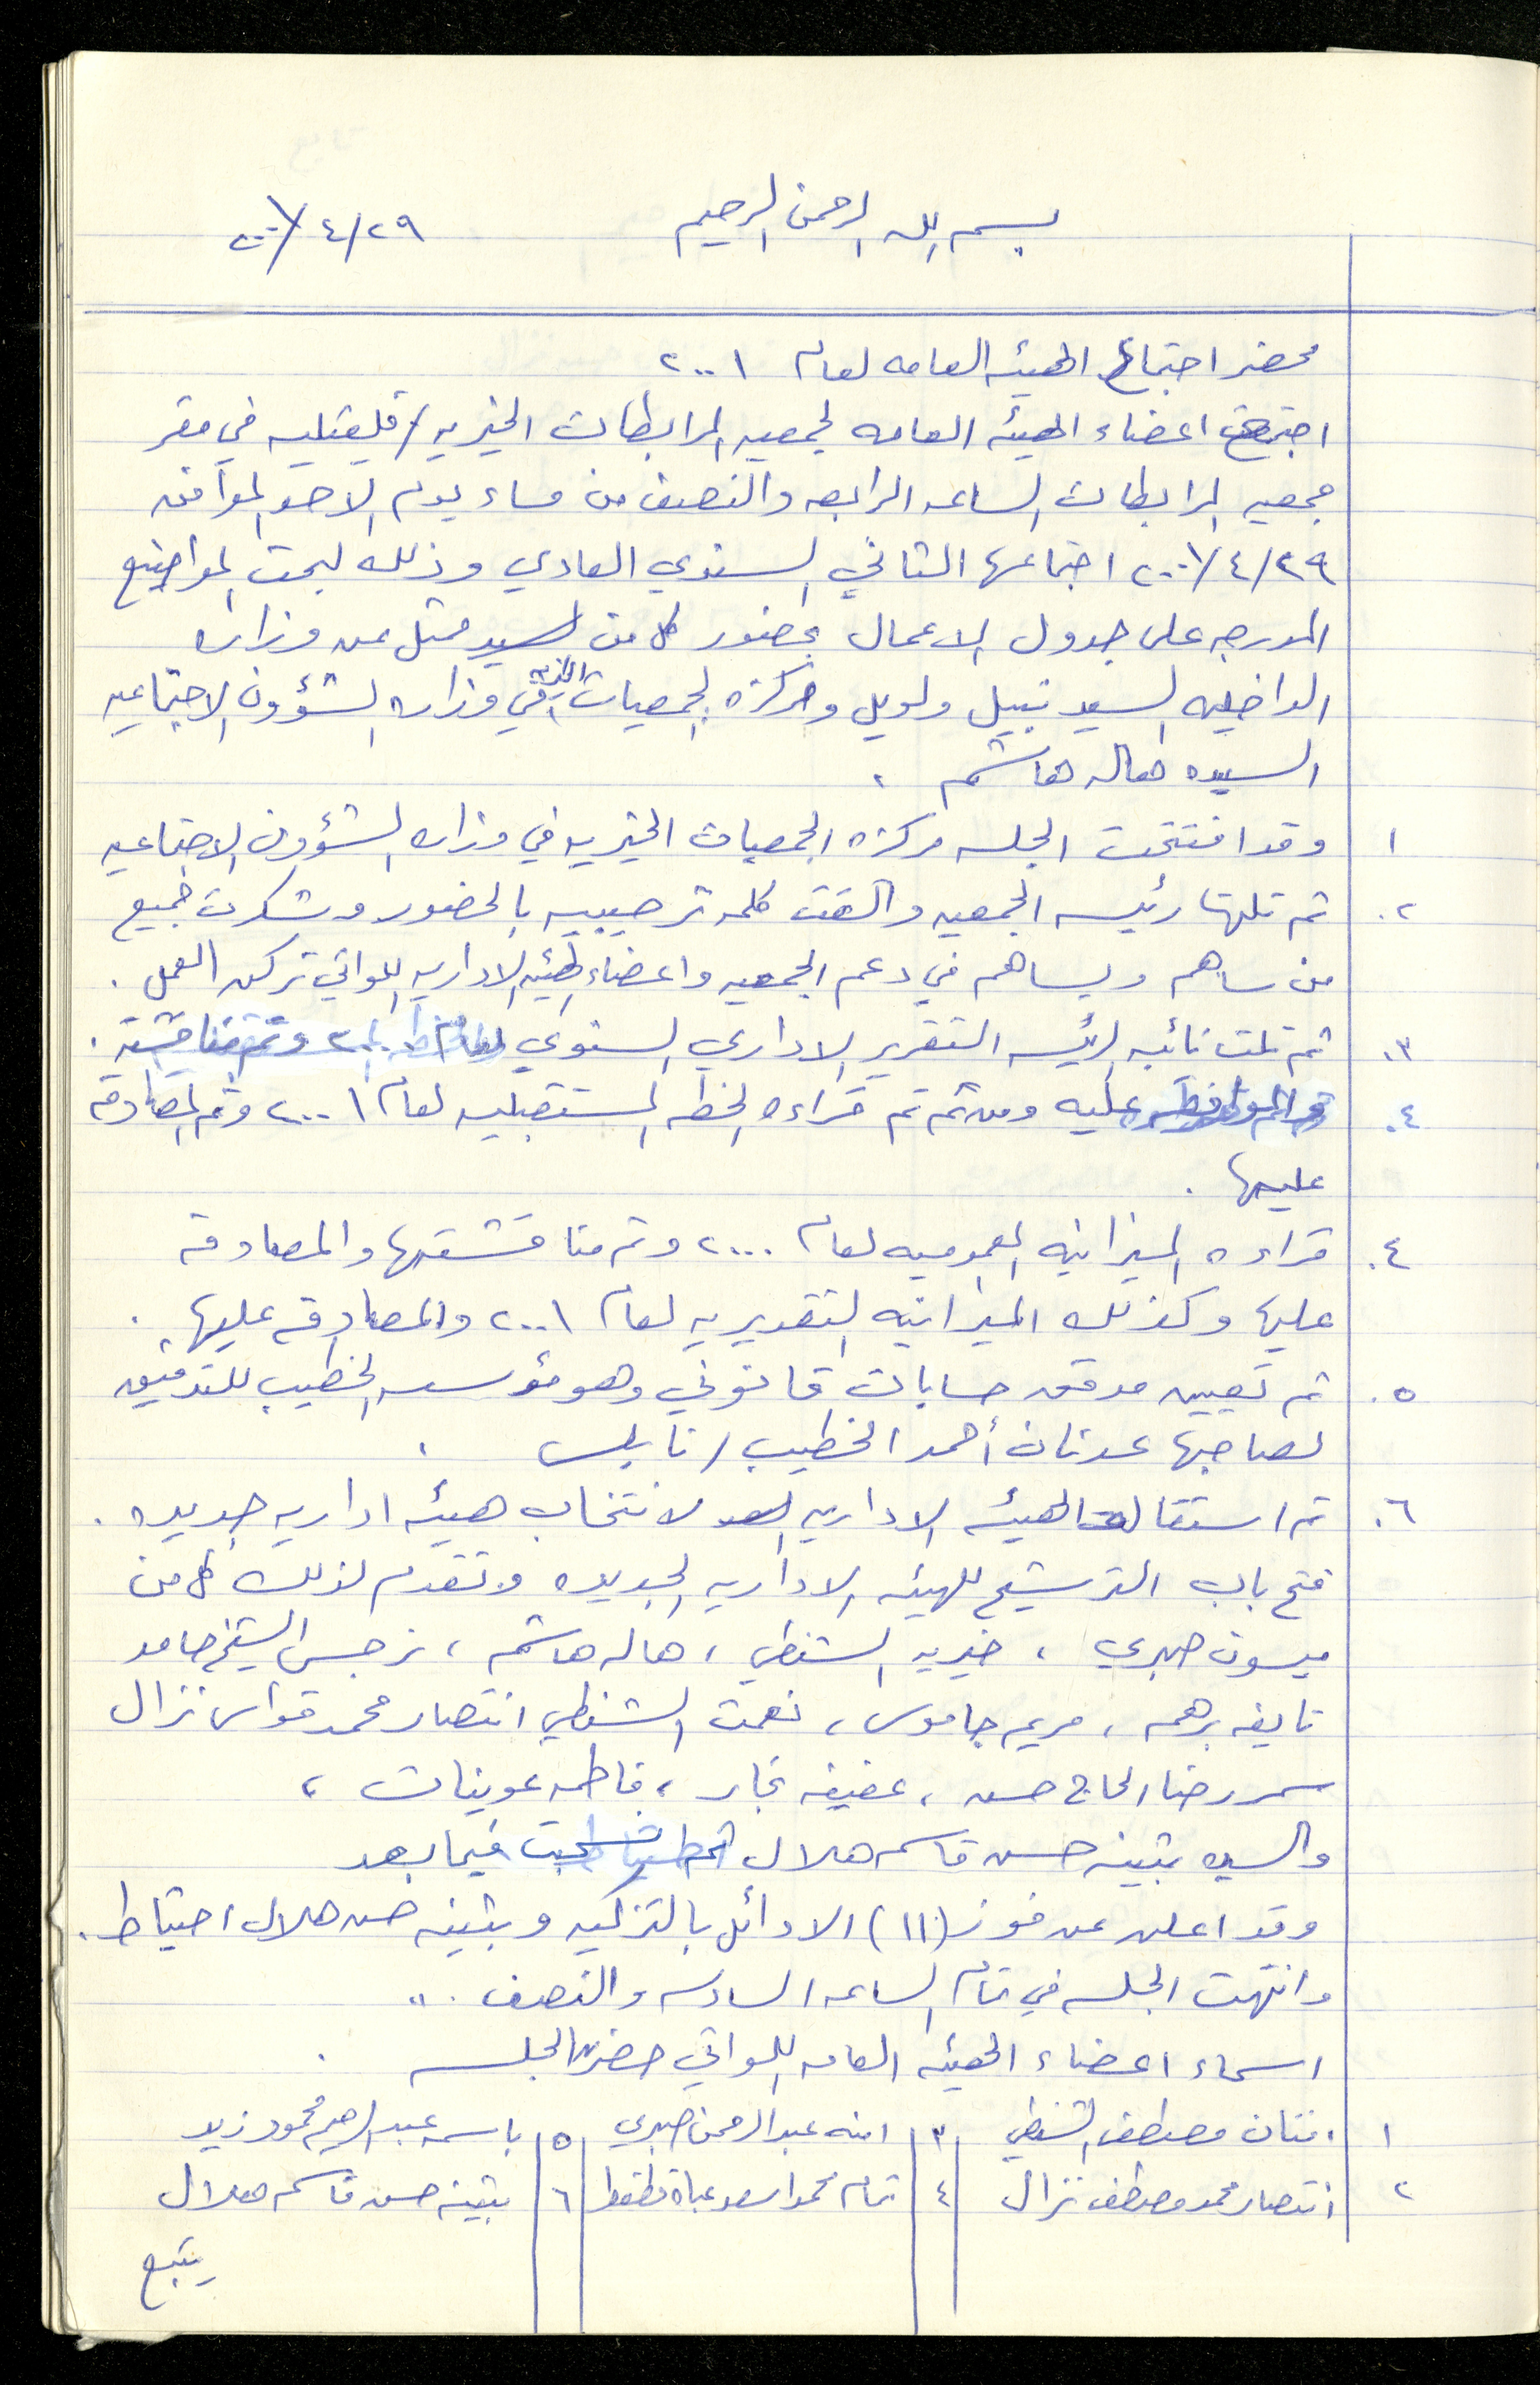 بسم الله الرحمن الرحيم
٢٠٠١/٤/٢٩
محضر اجتماع الهيئه العامه لعام ٢٠٠١
اجتمعت اعضاء الهيئه العامه لجمعيه المرابطات الخيريه / قلقيليه في مقر
جمعيه المرابطات الساعه الرابعه والنصف من مساء يوم الاحد الموافق
٢٠٠١/٤/٢٩ اجتماعها الثاني السنوي العادي وذلك لبحث المواضيع
المدرجه على جدول الاعمال بحضور كل من السيد ممثل عن وزاره
الداخليه السيد نبيل ولويل ومركزه الجمعيات الخيريه في وزاره الشؤون الاجتماعيه
السيده هاله هاشم .
١ وقد افتتحت الجلسه مركزه الجمعيات الخيريه في وزاره الشؤون الاجتماعيه
٢. ثم تلتها رئيسه الجمعيه والقت كلمه ترحيبيه بالحضور وشكرت جميع
من ساهم ويساهم في دعم الجمعيه واعضاء الهيئه الاداريه اللواتي تركن العمل .
٣. ثم تلت نائبه الرئيسه التقرير الاداري السنوي لعام ٢٠٠٠ وتم مناقشته .
٤. والموافقه عليه ومن ثم تم قراءه الخطه المستقبليه لعام ٢٠٠١ وتم المصادقه
عليها .
٤. قراءه الميزانيه العموميه لعام ٢٠٠٠ وتم مناقشتها والمصادقه
عليها وكذلك الميزانيه التقديريه لعام ٢٠٠١ والمصادقه عليها .
٥. تم تعيين مدقق حسابات قانوني وهو مؤسسه الخطيب للتدقيق
لصاحبها عدنان أحمد الخطيب / نابلس .
٦. تم استقاله الهيئه الاداريه لانتخاب هيئه اداريه جديده .
فتح باب الترشيح للهيئه الاداريه الجديده وتقدم لذلك كل من
ميسون صبري ، خيريه الشنطي ، هاله هاشم ، نرجس الشيخ حامد
نايفه برهم ، مريم جاموس ، نعمت الشنطي انتصار محمد قواس نزال
سمر رضا الحاج حسن ، عفيفه نجار ، فاطمه عوينات ،
والسيده بثينه حسن قاسم هلال فيما بعد
وقد اعلن عن فوز (١١) الاوائل بالتزكيه وبثينه حسن هلال احتياط .
وانتهت الجلسه في تمام الساعه السادسه والنصف ..
اسماء اعضاء الهيئه العامه اللواتي حضرن الجلسه .
١ افتنان مصطفى الشنطي ٣ امنه عبد الرحمن صبري ٥ باسمه عبد الرحيم محمود زيد
٢ انتصار محمد مصطفى نزال ٤ تمام محمد اسعد عباة قطقط ٦ بثينه حسن قاسم هلال
يتبع